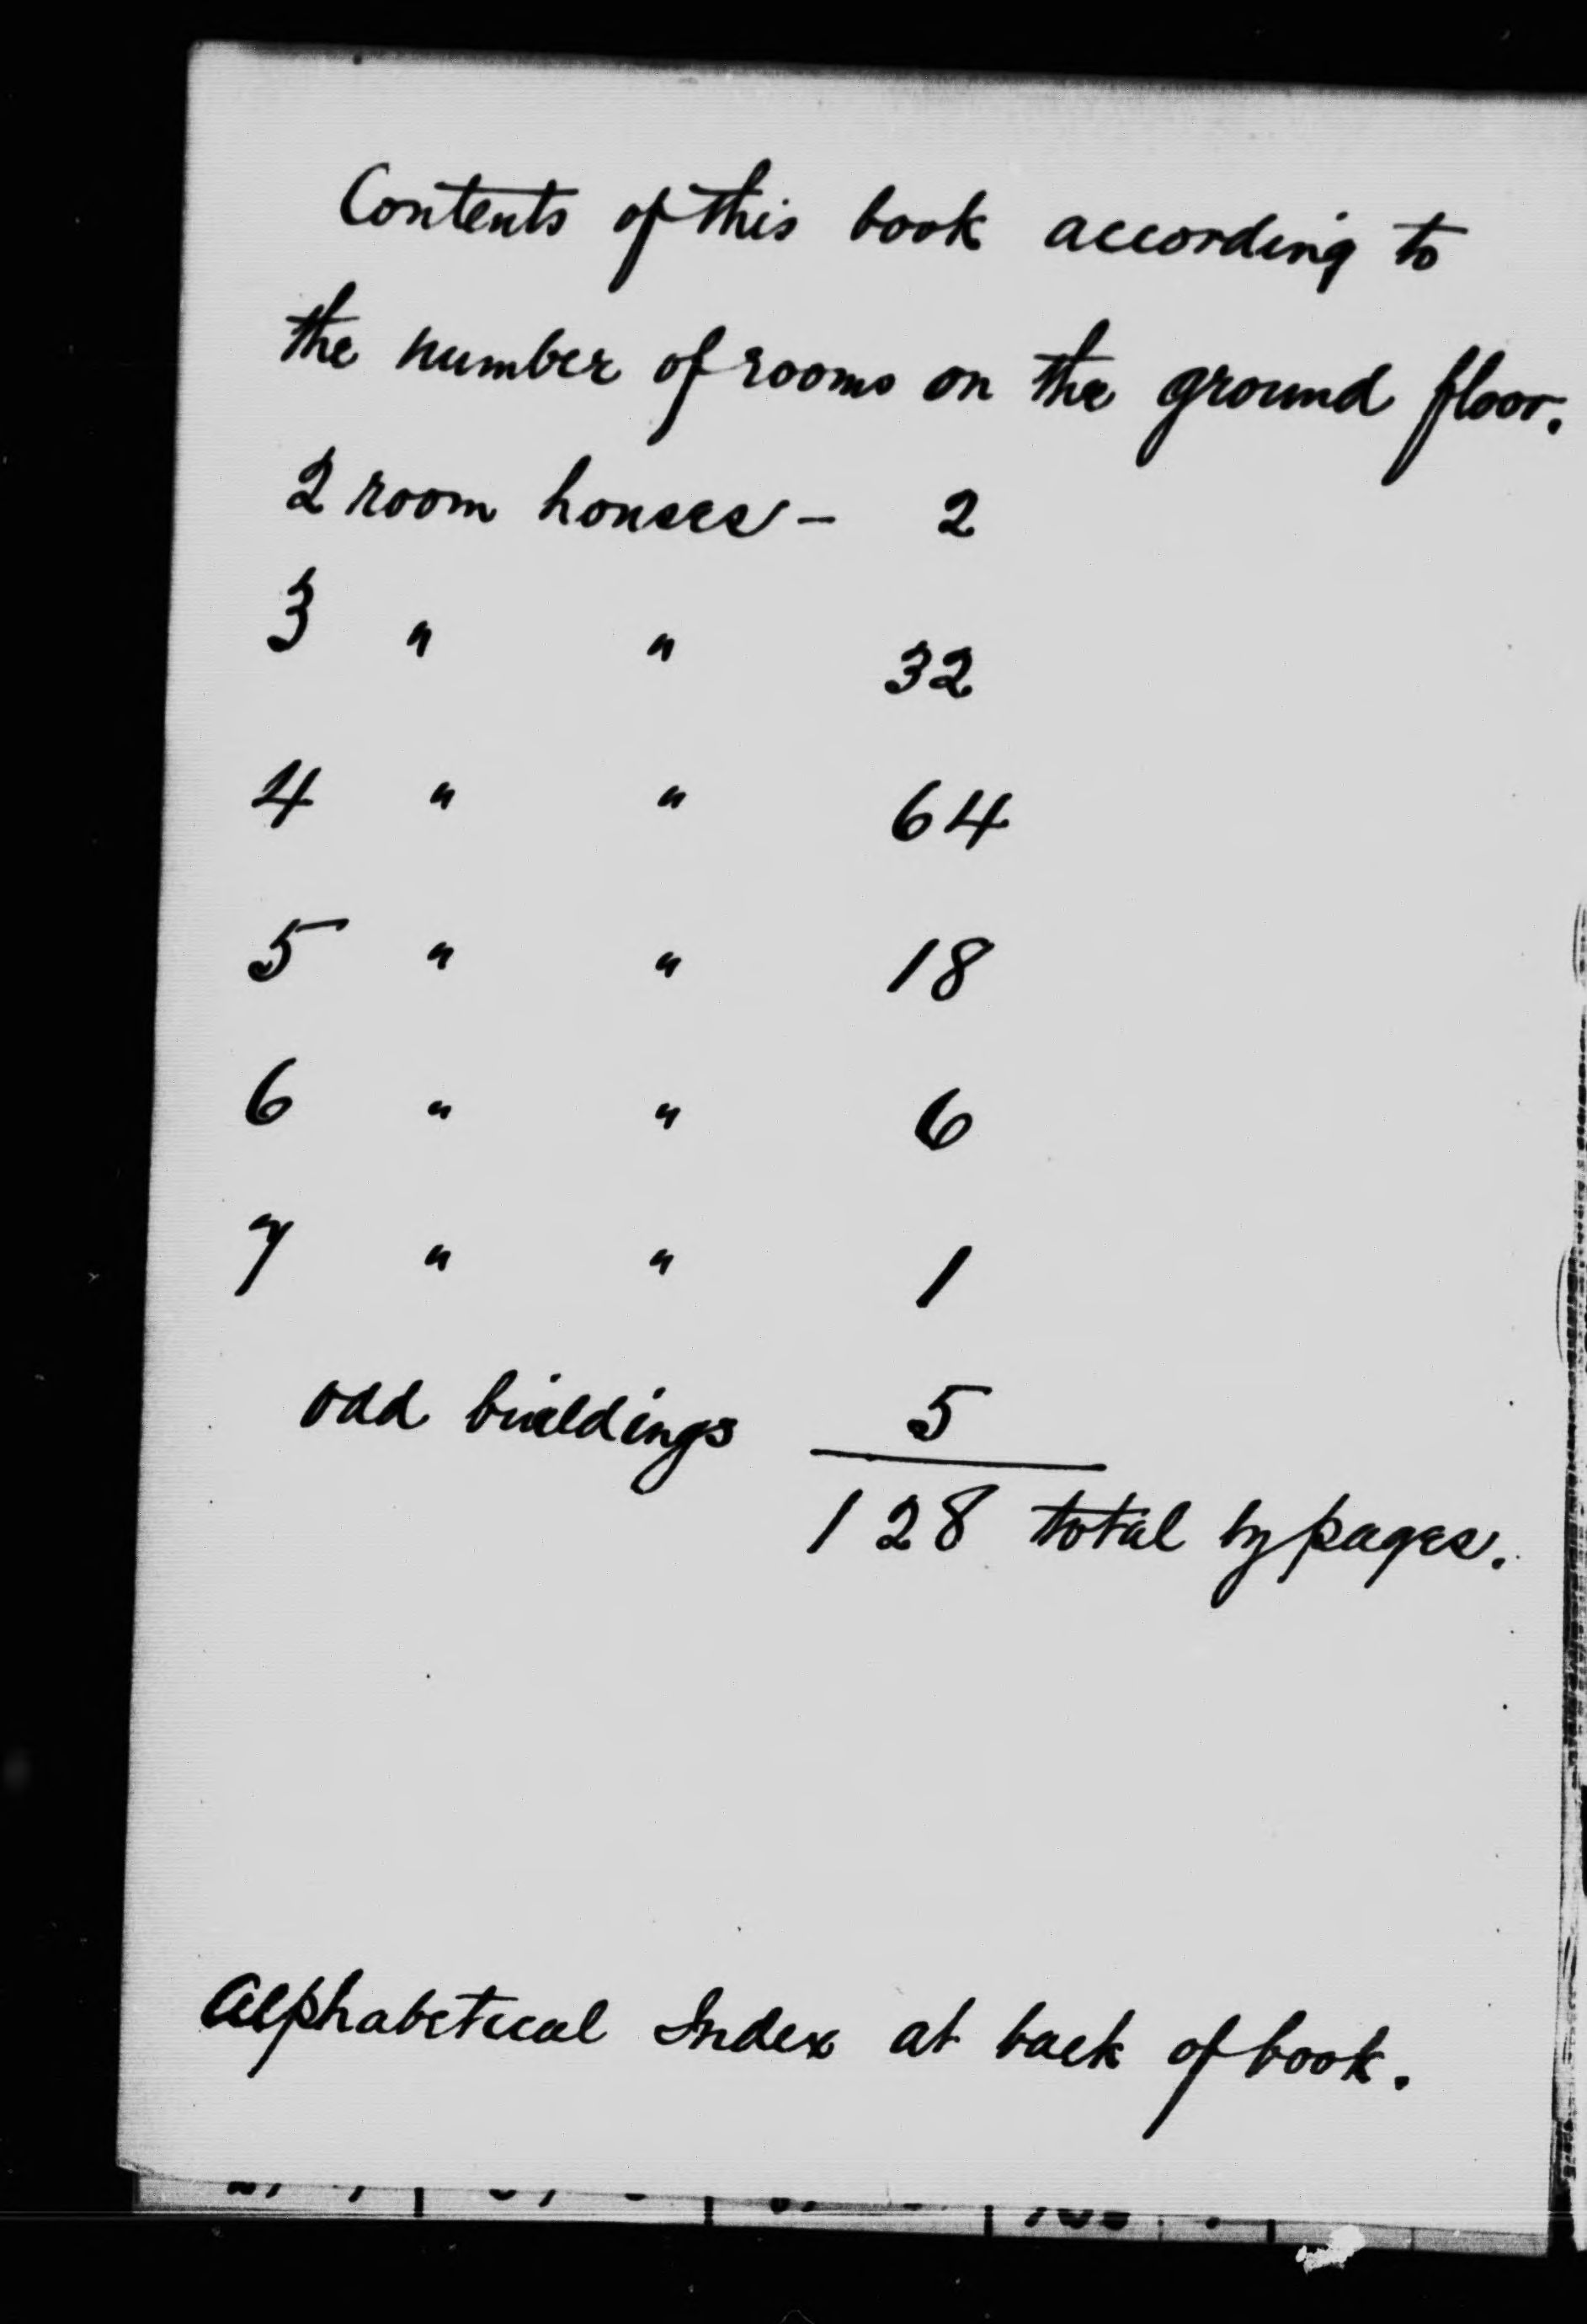 Contents of this book according to
the number of rooms on the ground floor.
2 room houses - 2
3 " " 32
4 " " 64
5 " " 18
6 " " 6
7 " " 1
odd buildings 5
128 total by pages.
Alphabetical Index at back of book.